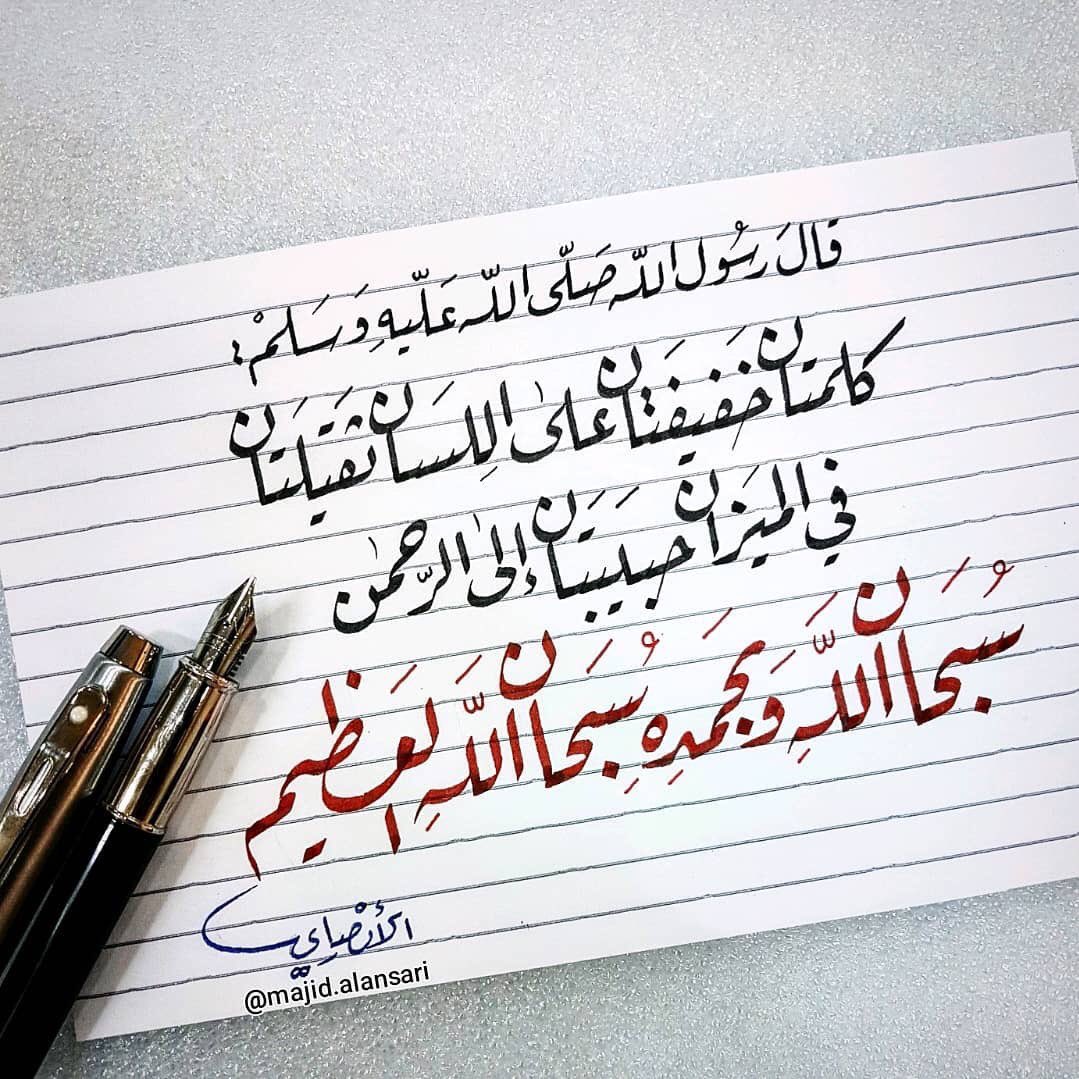 قالَ رَسُول اللّه صَلّى اللّه عَلَيّهِ وَسَلمْ :
كلمتَان خَفيفَتَان على اللِسَان ثقَيلتَان
في الميَزان حبَيبتَان إلى الرّحمٰن
سُبحَان اللَّهِ وَبحَمَدِهِ سُبِحَان اللَّهِ العَظَيم
الأنصاري
@majid.alansari